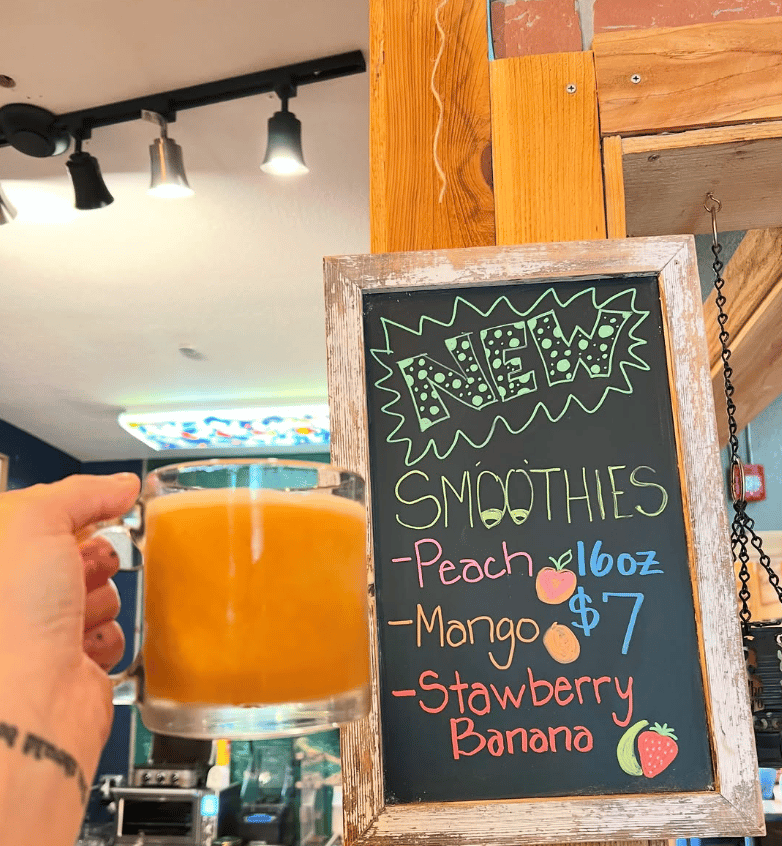 NEW
SMOOTHIES
-Peach 16oz
-Mango $7
-Stawberry
Banana